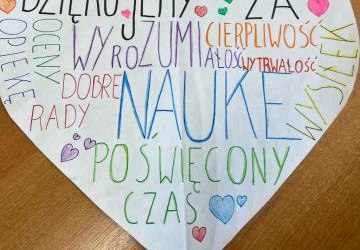 DZIĘKUJEMY ZA
OPIEKĘ
OCENY
WYROZUMIAŁOŚĆ
CIERPLIWOŚĆ
WYTRWAŁOŚĆ
WYSIŁEK
DOBRE
RADY
NAUKĘ
POŚWIĘCONY
CZAS